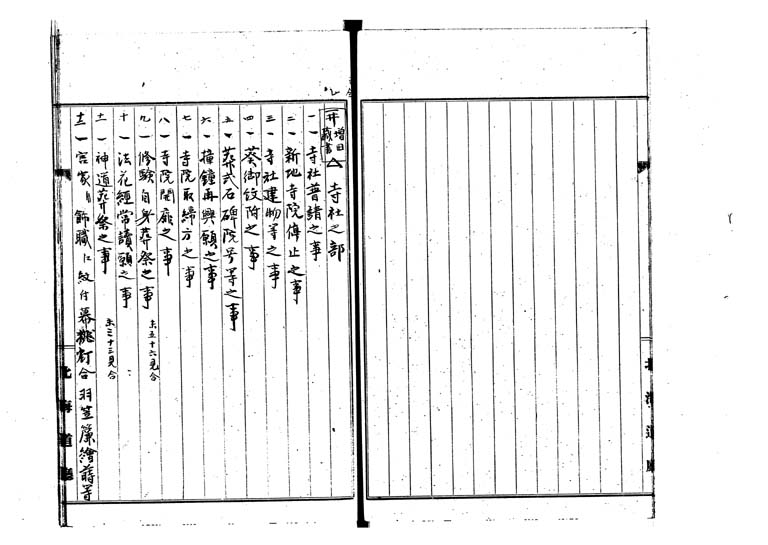 寺社之部
一 一 寺社普請之事
二 一 新地寺院停止之事
三 一 寺社建物等之事
四 一 葵御紋附之事
五 一 葬式石碑院号等之事
六 一 撞鐘再興願之事
七 一 寺院取締方之事
八 一 寺院開廊之事
九 一 修験自身葬祭之事 五十六見合
十 一 法花経常讀願之事
十一 一 神道葬祭之事 三十三見合
十二 一 宮家 飾職 紋付幕挑灯合羽笠簾繪
北海道廳
北海道廳